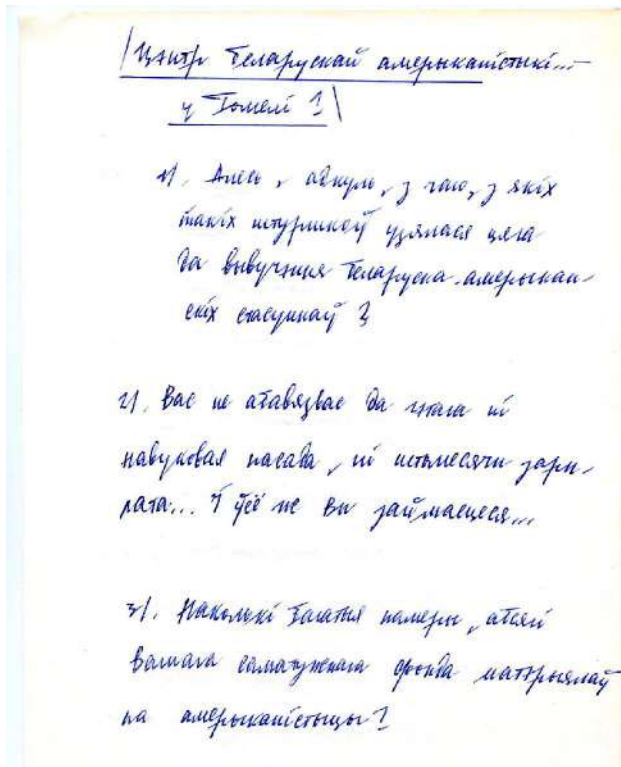 /Цэнтр беларускай амерыканістыкі...
у Гомелі?\
1). Алесь, адкуль, з чаго, з якіх
такіх штуршкоў узялася цяга
да вывучэння беларуска-амерыкан-
скіх стасункаў?
2). Вас не абавязвае да гэтага ні
навуковая пасада, ні штомесячн зарп-
лата... І ўсё ж вы займаецеся...
3). Наколькі багатыя памеры, абсяг
вашага саматужнага фонда матэрыялаў
па амерыканістыцы?